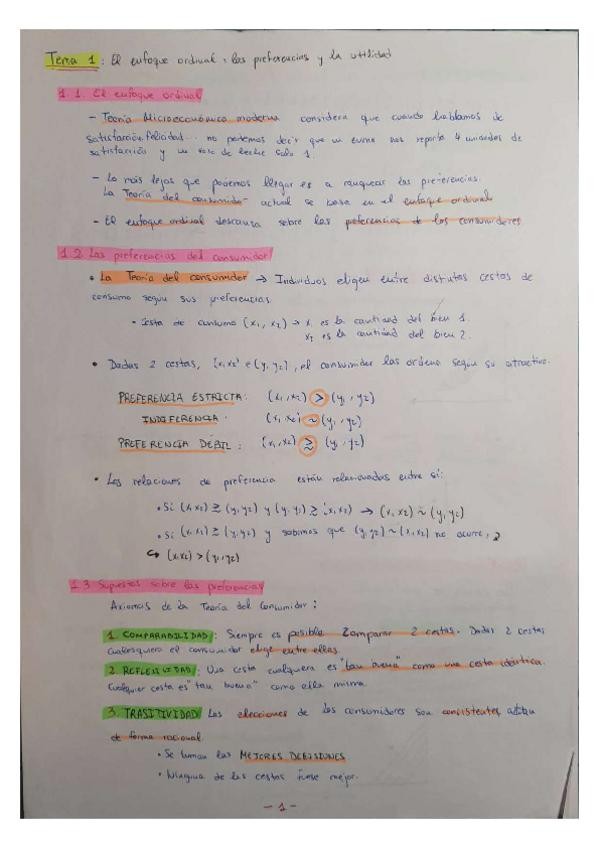 Tema 1: El enfoque ordinal: las preferencias y la utilidad
1.1. El enfoque ordinal
- Teoría Microeconómica moderna considera que cuando hablamos de
satisfacción, felicidad... no podemos decir que un euro nos reporta 4 unidades de
satisfacción y un vaso de leche solo 1.
- Lo más lejos que podemos llegar es a ranquear las preferencias.
La Teoría del consumidor actual se basa en el enfoque ordinal
- El enfoque ordinal descansa sobre las preferencias de los consumidores
1.2 Las preferencias del consumidor
• La Teoría del consumidor → Individuos eligen entre distintas cestas de
consumo según sus preferencias.
• Cesta de consumo (x₁, x₂) → x₁ es la cantidad del bien 1.
x₂ es la cantidad del bien 2.
• Dadas 2 cestas, (x₁x₂) e (y₁, y₂), el consumidor las ordena según su atractivo.
PREFERENCIA ESTRICTA: (x₁, x₂) > (y₁, y₂)
INDIFERENCIA: (x₁ x₂) ~ (y₁, y₂)
PREFERENCIA DÉBIL: (x₁, x₂) ≳ (y₁, y₂)
• Las relaciones de preferencia están relacionadas entre sí:
• Si (x₁x₂) ≳ (y₁, y₂) y (y₁ y₂) ≳ (x₁x₂) → (x₁ x₂) ~ (y₁, y₂)
• Si (x₁ x₂) ≳ (y₁, y₂) y sabemos que (y₁, y₂) ~ (x₁, x₂) no ocurre,
↳ (x₁x₂) > (y₁, y₂)
1.3 Supuestos sobre las preferencias
Axiomas de la Teoría del Consumidor:
1. COMPARABILIDAD: Siempre es posible comparar 2 cestas. Dadas 2 cestas
cualesquiera el consumidor elige entre ellas.
2. REFLEXIVIDAD: Una cesta cualquiera es "tan buena" como una cesta idéntica.
Cualquier cesta es "tan buena" como ella misma.
3. TRASITIVIDAD Las elecciones de los consumidores son consistentes,
de forma racional.
• Se toman las MEJORES DECISIONES
• Ninguna de las cestas fuese mejor.
- 1 -